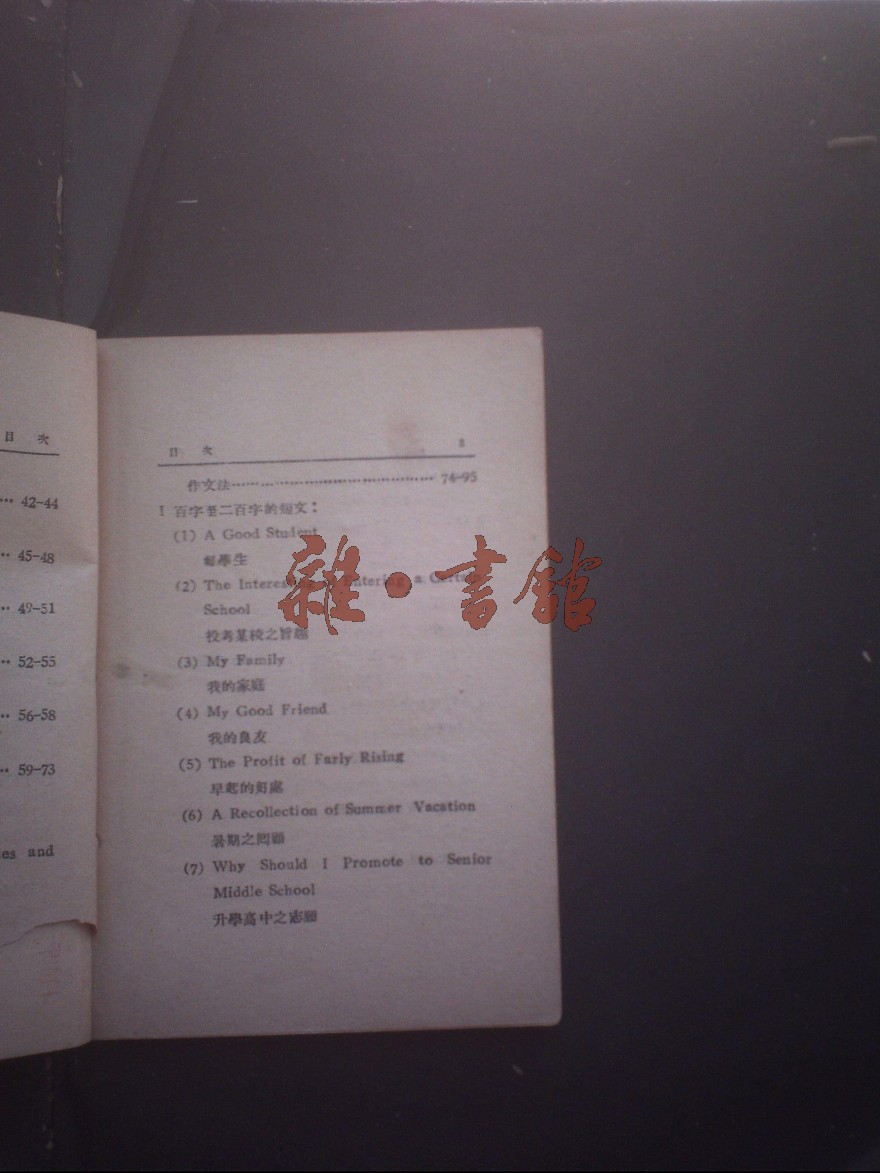 目 次
42-44
45-48
49-51
52-55
56-58
59-73
es and
目 次 3
作文法 74-95
1 百字至二百字的短文：
(1) A Good Student
好學生
(2) The Interesting Entering a Certain
School
投考某校之旨趣
(3) My Family
我的家庭
(4) My Good Friend
我的良友
(5) The Profit of Farly Rising
早起的好處
(6) A Recollection of Summer Vacation
暑期之囘顧
(7) Why Should I Promote to Senior
Middle School
升學高中之志願
雜·書館